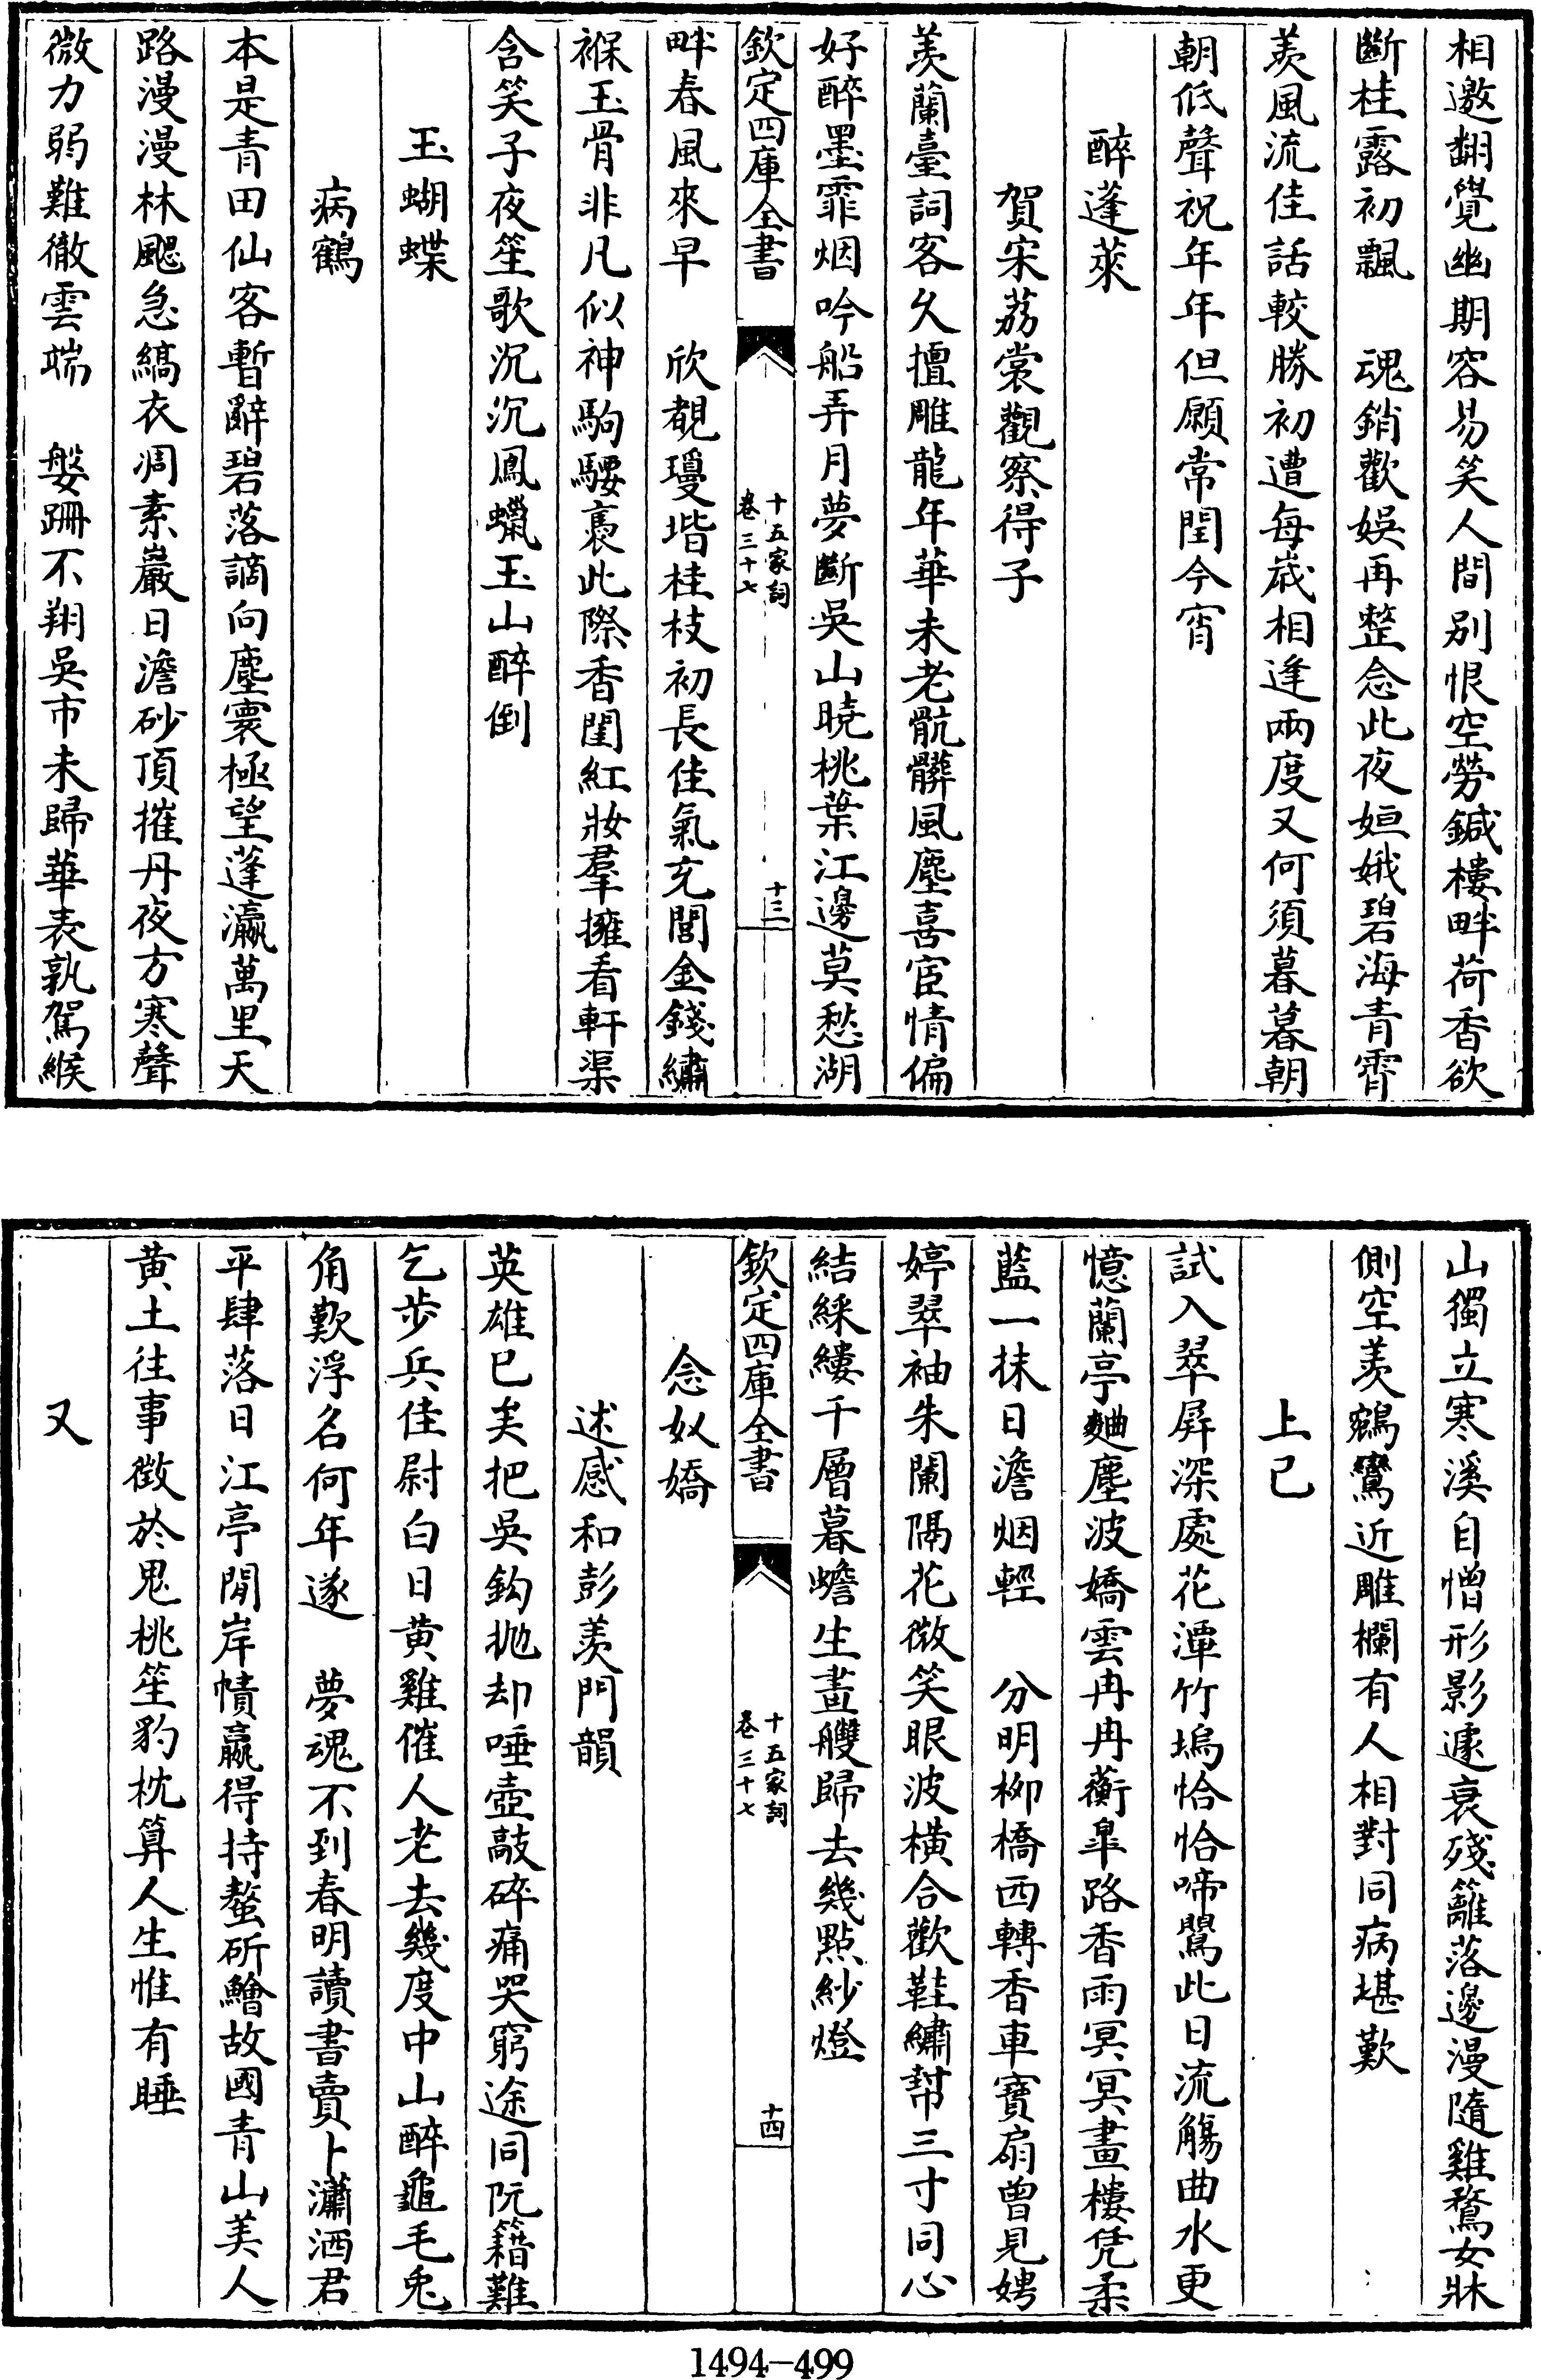 相邀翻覺幽期容易笑人間別恨空勞鍼樓畔荷香欲
斷桂露初飄　魂銷歡娛再整念此夜姮娥碧海青霄
羨風流佳話較勝初遭每歲相逢兩度又何須暮暮朝
朝低聲祝年年但願常閏今宵
醉蓬萊
賀宋荔裳觀察得子
羨蘭臺詞客久擅雕龍年華未老骯髒風塵喜宦情偏
好醉墨霏烟吟船弄月夢斷吳山曉桃葉江邊莫愁湖
欽定四庫全書
十五家詞
卷三十七
十三
畔春風來早　欣覩瓊堦桂枝初長佳氣充閭金錢繡
褓玉骨非凡似神駒騕褭此際香閨紅妝羣擁看軒渠
含笑子夜笙歌沉沉鳳蠟玉山醉倒
玉蝴蝶
病鶴
本是青田仙客暫辭碧落謫向塵寰極望蓬瀛萬里天
路漫漫林颸急縞衣凋素巖日澹砂頂摧丹夜方寒聲
微力弱難徹雲端　媻跚不翔吳市未歸華表孰駕緱
山獨立寒溪自憎形影遽衰殘籬落邊漫隨雞鶩女牀
側空羨鵷鸞近雕欄有人相對同病堪歎
上巳
試入翠屏深處花潭竹塢恰恰啼鶯此日流觴曲水更
憶蘭亭麯塵波嬌雲冉冉蘅皐路香雨冥冥畫樓凭柔
藍一抹日澹烟輕　分明柳橋西轉香車寶扇曾見娉
婷翠袖朱闌隔花微笑眼波橫合歡鞋繡幇三寸同心
結綵縷千層暮蟾生畫艭歸去幾點紗燈
欽定四庫全書
十五家詞
卷三十七
十四
念奴嬌
述感和彭羨門韻
英雄已矣把吳鈎拋却唾壺敲碎痛哭窮途同阮籍難
乞步兵佳尉白日黃雞催人老去幾度中山醉龜毛兎
角歎浮名何年遂　夢魂不到春明讀書賣卜瀟洒君
平肆落日江亭閒岸幘贏得持螯斫鱠故國青山美人
黃土往事徵於鬼桃笙豹枕算人生惟有睡
又
1494-499